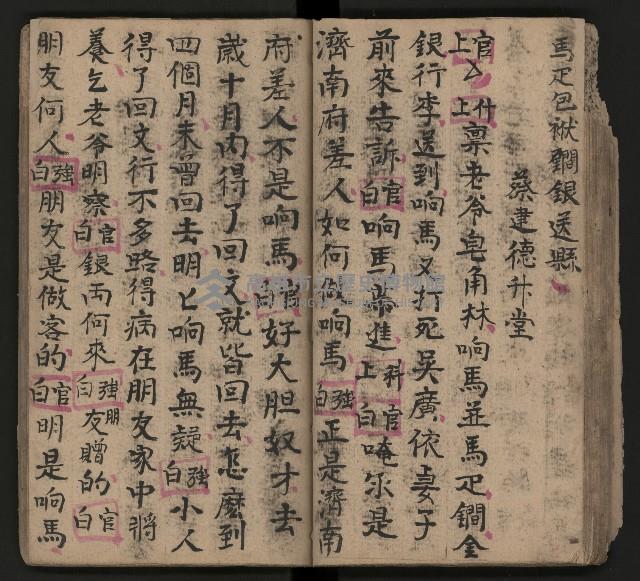 馬疋包袱鐧銀送縣
蔡建德升堂
官上厶什上禀老爺皂角林响馬並馬疋鐧金
銀行李送到响馬又打死吳廣依妻子
前來告訴官白响馬帶進科上官白唵尔是
濟南府差人如何做响馬強白正是濟南
府差人不是响馬官白好大胆奴才去
歲十月內得了回文就皆回去怎麽到
四個月未曾回去明匕响馬無疑強白小人
得了回文行不多路得病在朋友家中將
養乞老爺明察官白銀両何來強白朋友贈的官白
朋友何人強白朋友是做客的官白明是响馬